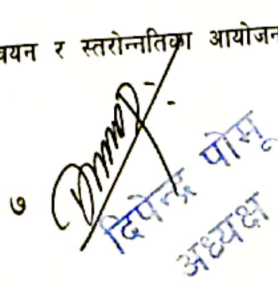 वयन र स्तरोन्नतिका आयोजन
७
दिपेन्द्र पोमू
अध्यक्ष